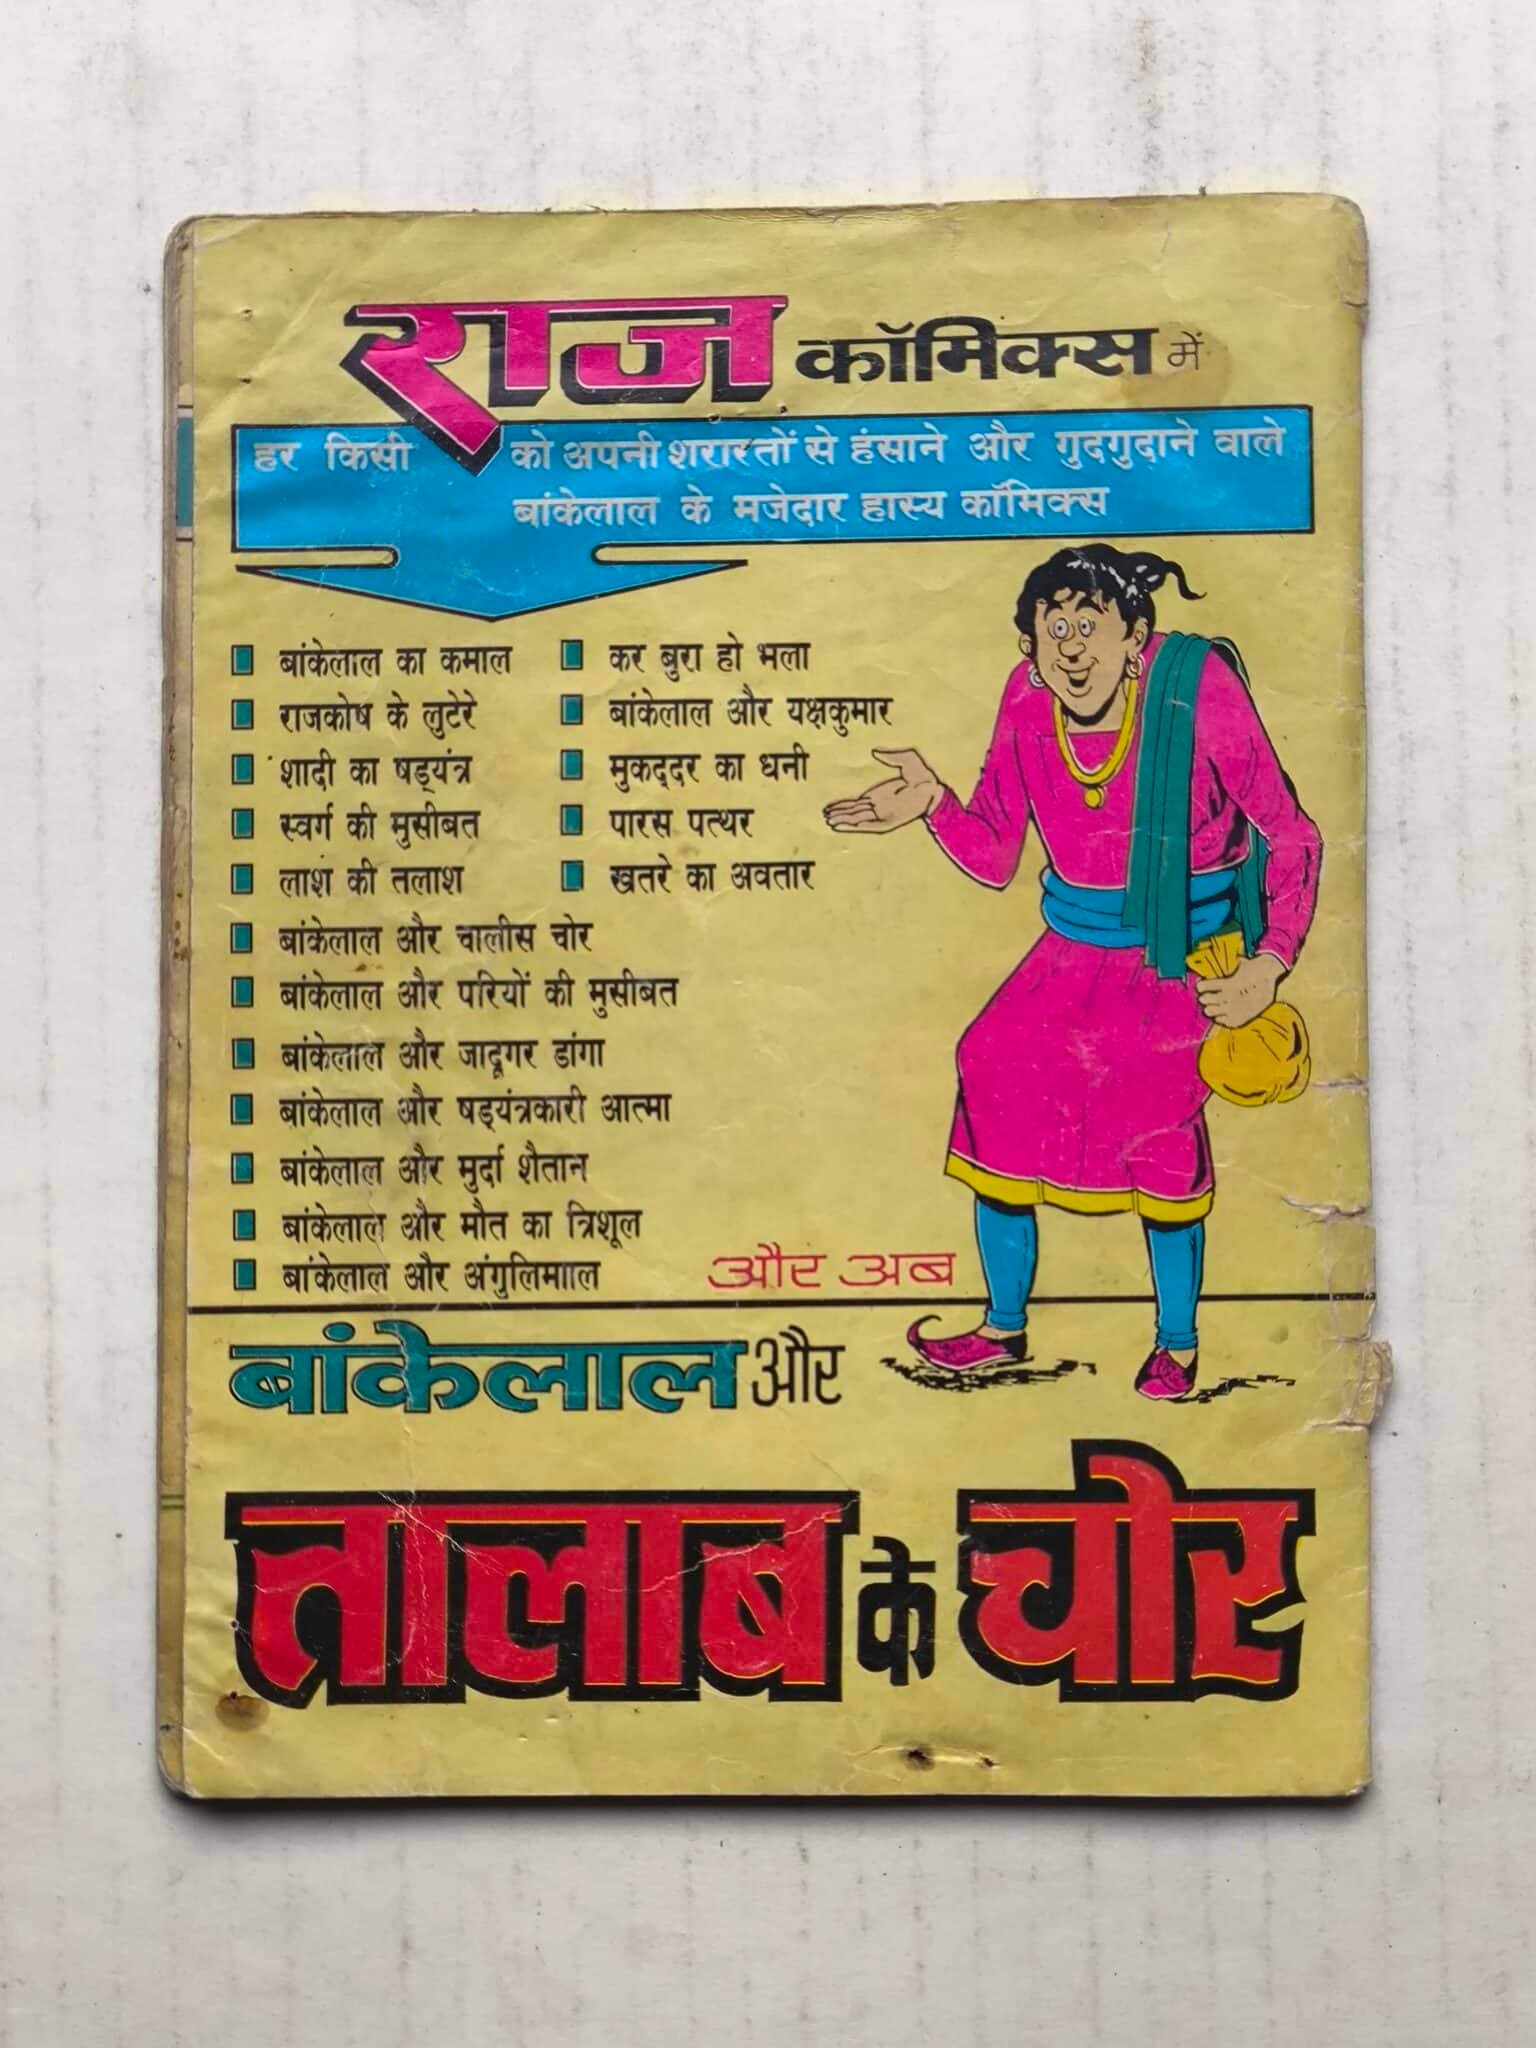 राज कॉमिक्स में
हर किसी को अपनी शरारतों से हंसाने और गुदगुदाने वाले
बांकेलाल के मजेदार हास्य कॉमिक्स
बांकेलाल का कमाल
राजकोष के लुटेरे
शादी का षड्यंत्र
स्वर्ग की मुसीबत
लाश की तलाश
कर बुरा हो भला
बांकेलाल और यक्षकुमार
मुकद्दर का धनी
पारस पत्थर
खतरे का अवतार
बांकेलाल और चालीस चोर
बांकेलाल और परियों की मुसीबत
बांकेलाल और जादूगर डांगा
बांकेलाल और षड्यंत्रकारी आत्मा
बांकेलाल और मुर्दा शैतान
बांकेलाल और मौत का त्रिशूल
बांकेलाल और अंगुलिमााल
और अब
बांकेलाल और
तालाब के चोर